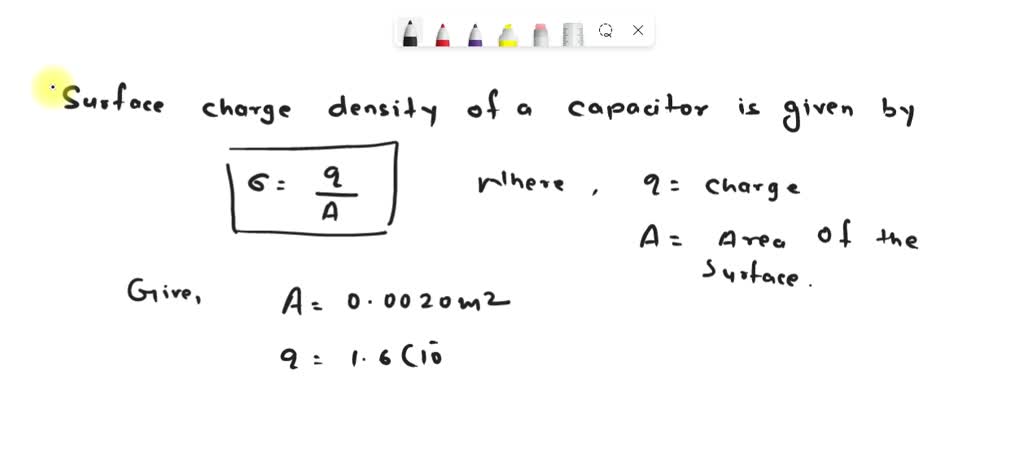 Surface charge density of a capacitor is given by
σ = q/A where, q = charge
A = Area of the surface.
Give, A = 0.0020m2
q = 1.6 (10^-